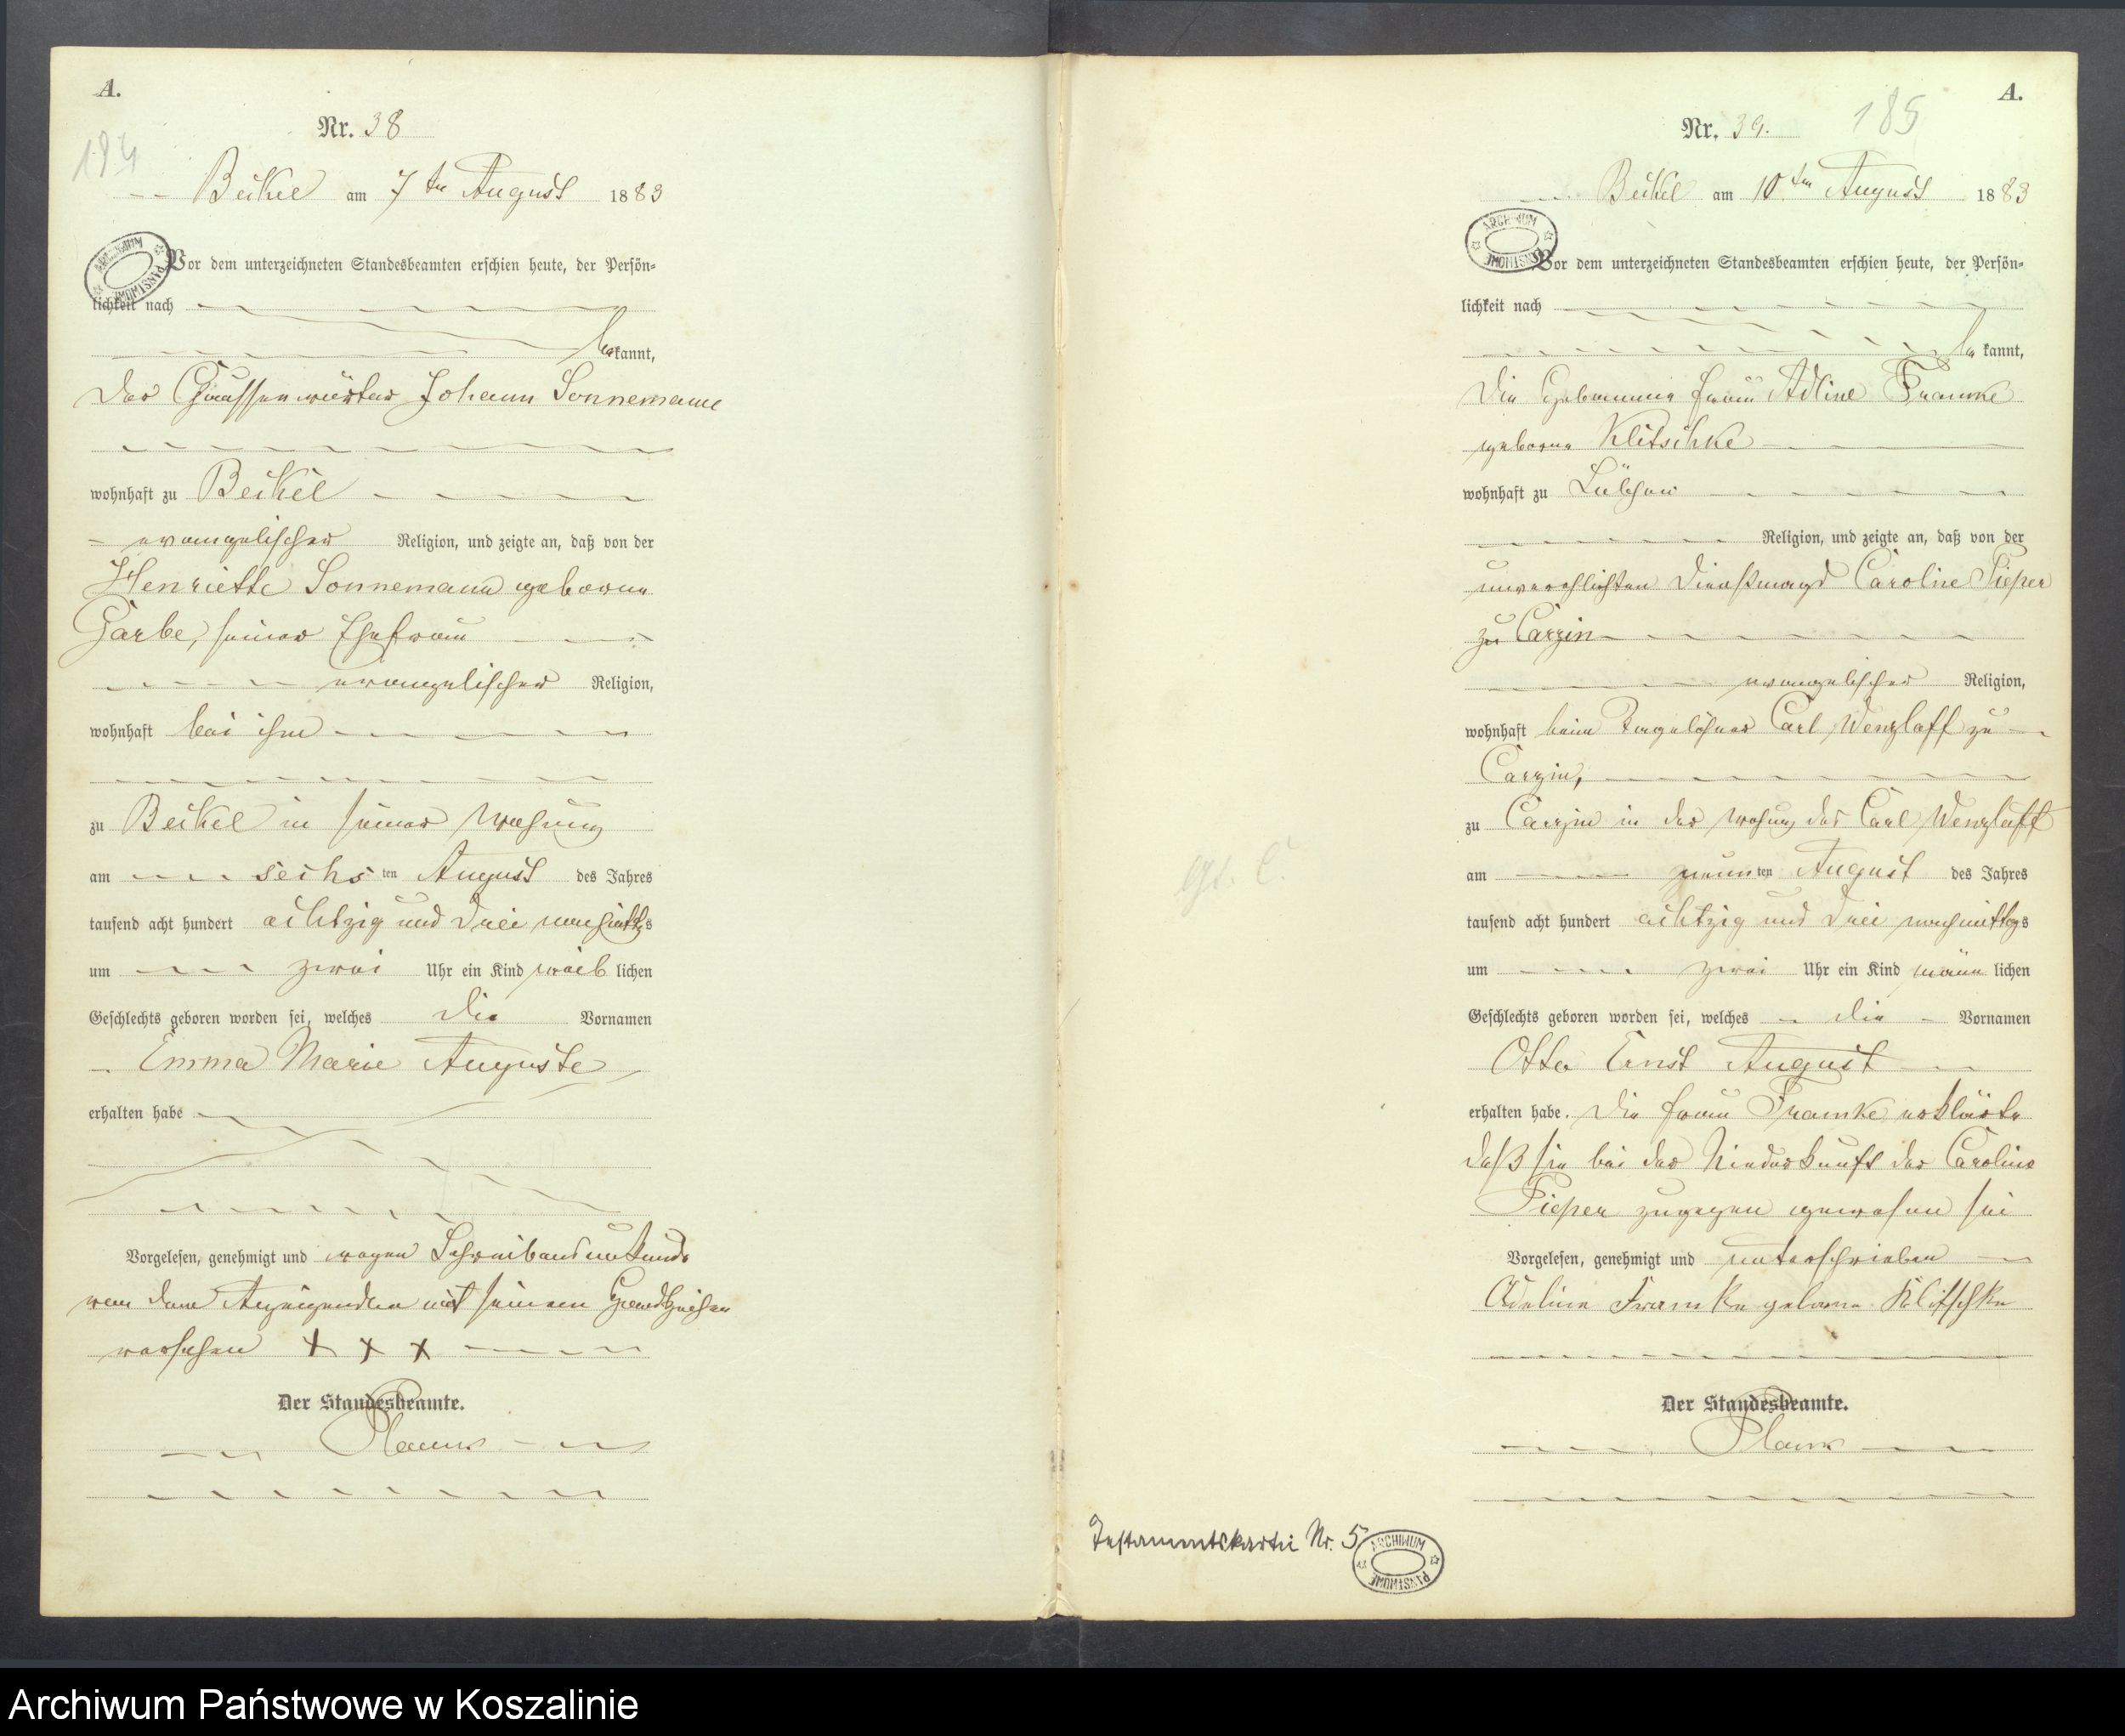 A.
Nr. 38
194
Beikel am 7ten August 1883
Vor dem unterzeichneten Standesbeamten erschien heute, der Persön=
lichkeit nach
bekannt,
der Chausseewärter Johann Sonnemann
wohnhaft zu Beikel
evangelischer Religion, und zeigte an, daß von der
Henriette Sonnemann geborene
Garbe, seiner Ehefrau
evangelischer Religion,
wohnhaft bei ihm
zu Beikel in seiner Wohnung
am sechsten August des Jahres
tausend acht hundert achtzig und drei nachmittgs
um zwei Uhr ein Kind weiblichen
Geschlechts geboren worden sei, welches die Vornamen
Emma Marie Auguste
erhalten habe
Vorgelesen, genehmigt und wegen Schreibensunkunde
von dem Anzeigenden mit seinem Handzeichen
versehen + + +
Der Standesbeamte.
ARCHIWUM PAŃSTWOWE
A.
Nr. 39.
185
Beikel am 10ten August 1883
Vor dem unterzeichneten Standesbeamten erschien heute, der Persön=
lichkeit nach
bekannt,
die Hebamme Frau Adline Framke
geborne Klitschke
wohnhaft zu Lübzow
Religion, und zeigte an, daß von der
unverehlichten Dienstmagd Caroline Pieper
zu Carzin
evangelischer Religion,
wohnhaft beim Tagelöhner Carl Wenzlaff zu
Carzin,
zu Carzin in der Wohung des Carl Wenzlaff
am neunten August des Jahres
tausend acht hundert achtzig und drei nachmittgs
um zwei Uhr ein Kind männlichen
Geschlechts geboren worden sei, welches die Vornamen
Otto Ernst August
erhalten habe. Die Frau Framke erklärte
daß sie bei der Niederkunft der Caroline
Pieper zugegen gewesen sei
Vorgelesen, genehmigt und unterschrieben
Adeline Framke geborne Klitschke
Der Standesbeamte.
ARCHIWUM PAŃSTWOWE
Testamentskartei Nr. 5
ARCHIWUM PAŃSTWOWE
Archiwum Państwowe w Koszalinie